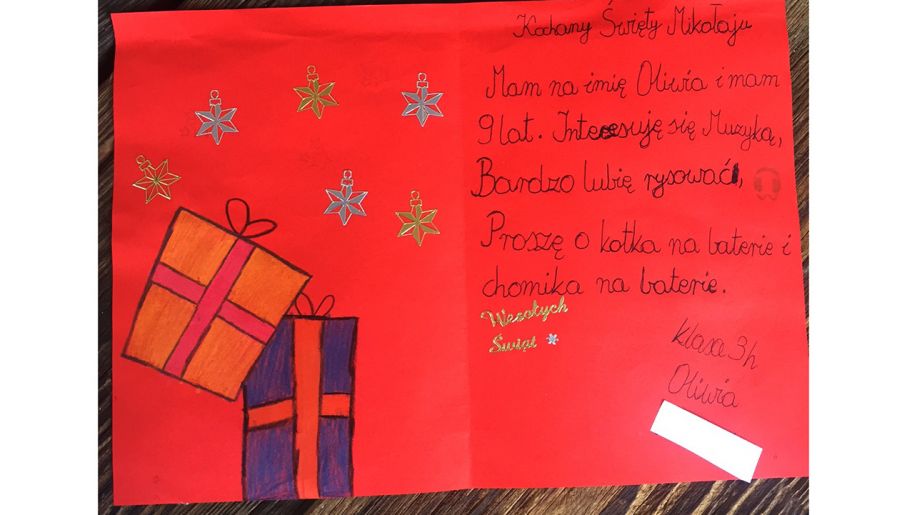 Kochany Święty Mikołaju
Mam na imię Oliwia i mam
9 lat. Interesuję się Muzyką,
Bardzo lubię rysować,
Proszę o kotka na baterie i
chomika na baterie.
Wesołych
Świąt
Klasa 3h
Oliwia